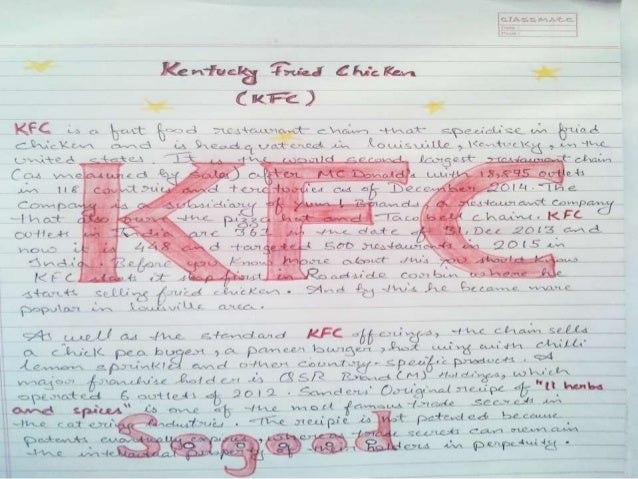 CLASSMATE
Date
Page
Kentucky Fried Chicken
(KFC)
KFC is a fast food restaurant chain that specidise in friad
chicken and is headquatered in Louisville, Kentucky, in the
United states. It is the world second largest restaurant chain
(as measured by sales) after MC Donald's with 18,895 outlets
in 118 countries and terc tories as of December 2014. The
Company is a subsidiary of yum! Brands a restaurant company
that also owns the pizza hut and Taco bell chains. KFC
outlets in India are 362 in the date of 31, Dec 2013 and
now it is 448 and targeted 500 restaurants in 2015 in
India. Before you know more about this you should know
KFC starts it stop first in Roadside corbin where he
starts selling fried chicken. And by this he became more
popular in Louisville area.
As well as the standard KFC offerings, the chain sells
a chick pea buger, a paneer burger, hot wing with chilli
lemon sprinkles and other country-specific products. A
major franchise holder is QSR Brand (M) Holdings, which
operated 6 outlets of 2012. Sanders' Original recipe of "11 herbs
and spices" is one of the most famous trade secrets in
the catering industries. The recipie is not patended because
patents eventually expires, whereas trade secrets can remain
the intellectual property of their holders in perpetuity.
KFC
So good